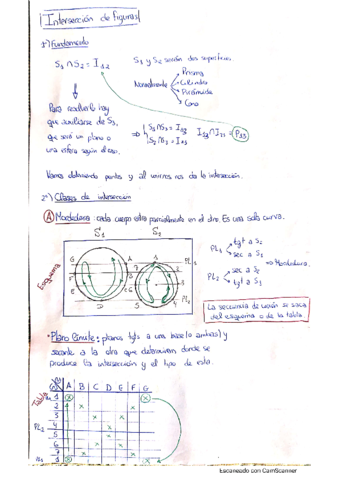 Intersección de figuras
1º) Fundamento
S₁ ∩ S₂ = I₁₂
S₁ y S₂ serán dos superficies
Normalmente
Prisma
Cilindro
Pirámide
Cono
Para resolverlo hay
que auxiliarse de S₃,
que será un plano o
una esfera según el caso.
⇒ S₁ ∩ S₃ = I₁₃
S₂ ∩ S₃ = I₂₃
I₁₃ ∩ I₂₃ = P₁₂₃
Vamos obteniendo puntos y al unirlos nos da la intersección.
2º) Clases de intersección
A Mordedura: cada cuerpo entra parcialmente en el otro. Es una sola curva.
Esquema
PL₁ tgt a S₂
sec a S₁
PL₂ sec a S₂
tgt a S₁
⇒ Mordedura
La secuencia de unión se saca
del esquema o de la tabla.
• Plano límite: planos tgts a una base (o ambas) y
secante a la otra que determinan donde se
produce la intersección y el tipo de esta.
Tabla
A B C D E F G
1
2
3
4
5
6
PL₂
Escaneado con CamScanner